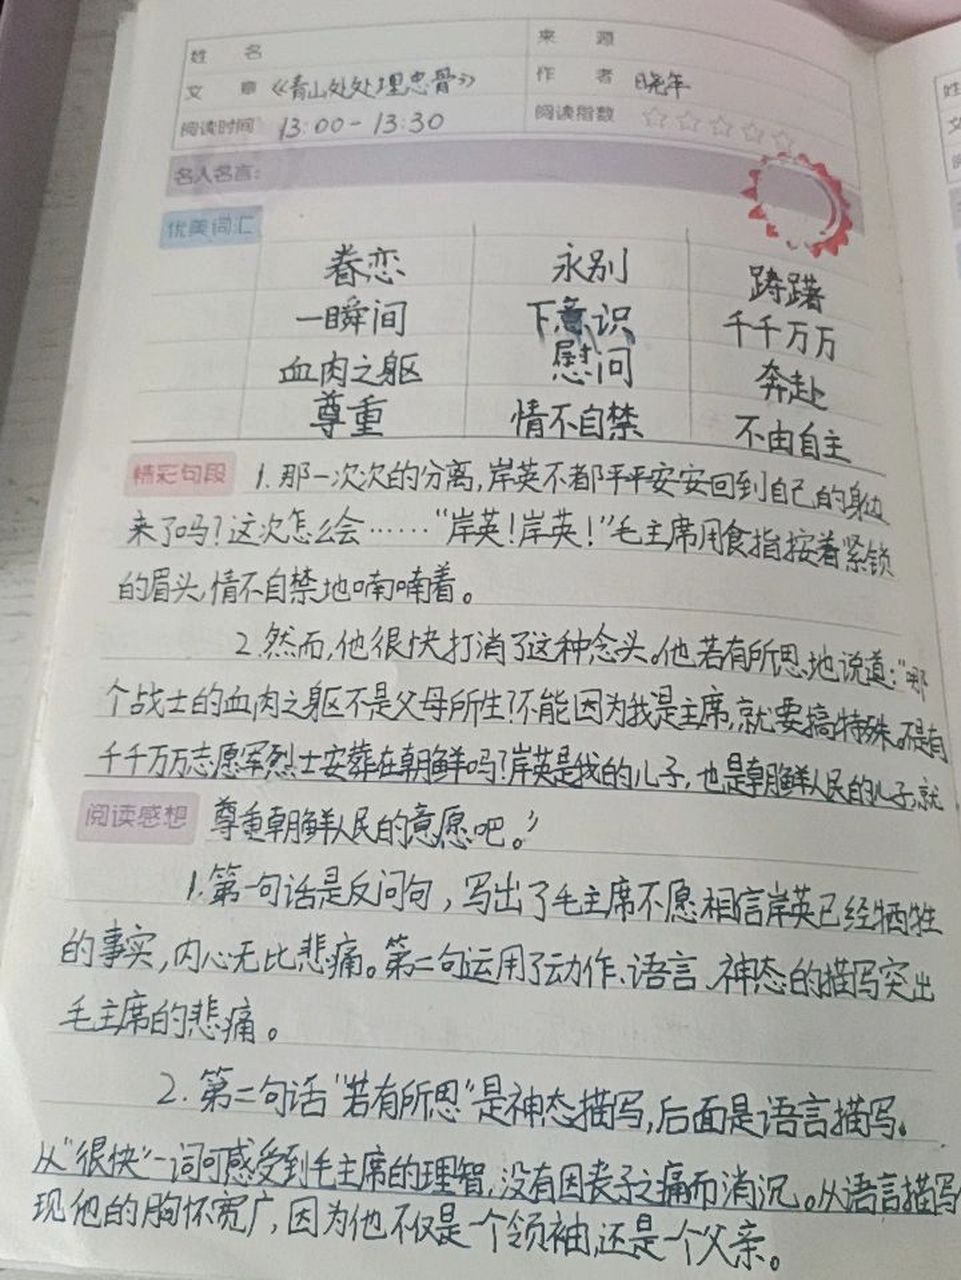 姓 名 来 源
文 章 《青山处处埋忠骨》 作 者 晓年
阅读时间 13:00-13:30 阅读指数 ☆☆☆☆☆
名人名言:
优美词汇
眷恋 永别 踌躇
一瞬间 下意识 千千万万
血肉之躯 慰问 奔赴
尊重 情不自禁 不由自主
精彩句段 1.那一次次的分离,岸英不都平平安安回到自己的身边
来了吗?这次怎么会……“岸英!岸英!”毛主席用食指按着紧锁
的眉头,情不自禁地喃喃着。
2.然而,他很快打消了这种念头。他若有所思地说道:“哪
个战士的血肉之躯不是父母所生?不能因为我是主席,就要搞特殊。不是有
千千万万志愿军烈士安葬在朝鲜吗?岸英是我的儿子,也是朝鲜人民的儿子,就
阅读感想 尊重朝鲜人民的意愿吧。”
1.第一句话是反问句,写出了毛主席不愿相信岸英已经牺牲
的事实,内心无比悲痛。第二句运用了动作、语言、神态的描写突出
毛主席的悲痛。
2.第二句话“若有所思”是神态描写,后面是语言描写。
从“很快”一词可感受到毛主席的理智,没有因丧子之痛而消沉。从语言描写
现他的胸怀宽广,因为他不仅是一个领袖,还是一个父亲。